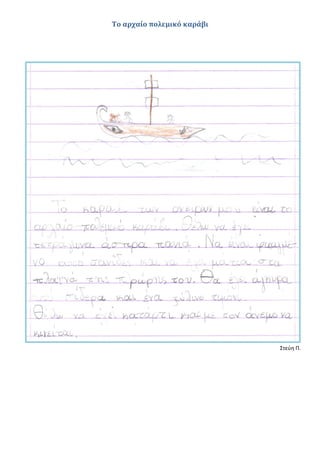 Το αρχαίο πολεμικό καράβι
Το καράβι των ονείρων μου είναι το
αρχαίο πολεμικό καράβι. Θέλω να έχει
τετράγωνα άσπρα πανιά. Να είναι φτιαγμέ-
νο από σανίδες και να έχει μάτια στα
πλαϊνά της πλώρης του. Θα έχει άγκυρα
από σίδερο και ένα ξύλινο τιμόνι.
Θέλω να έχει κατάρτι και με τον άνεμο να
κινείται.
Στεύη Π.